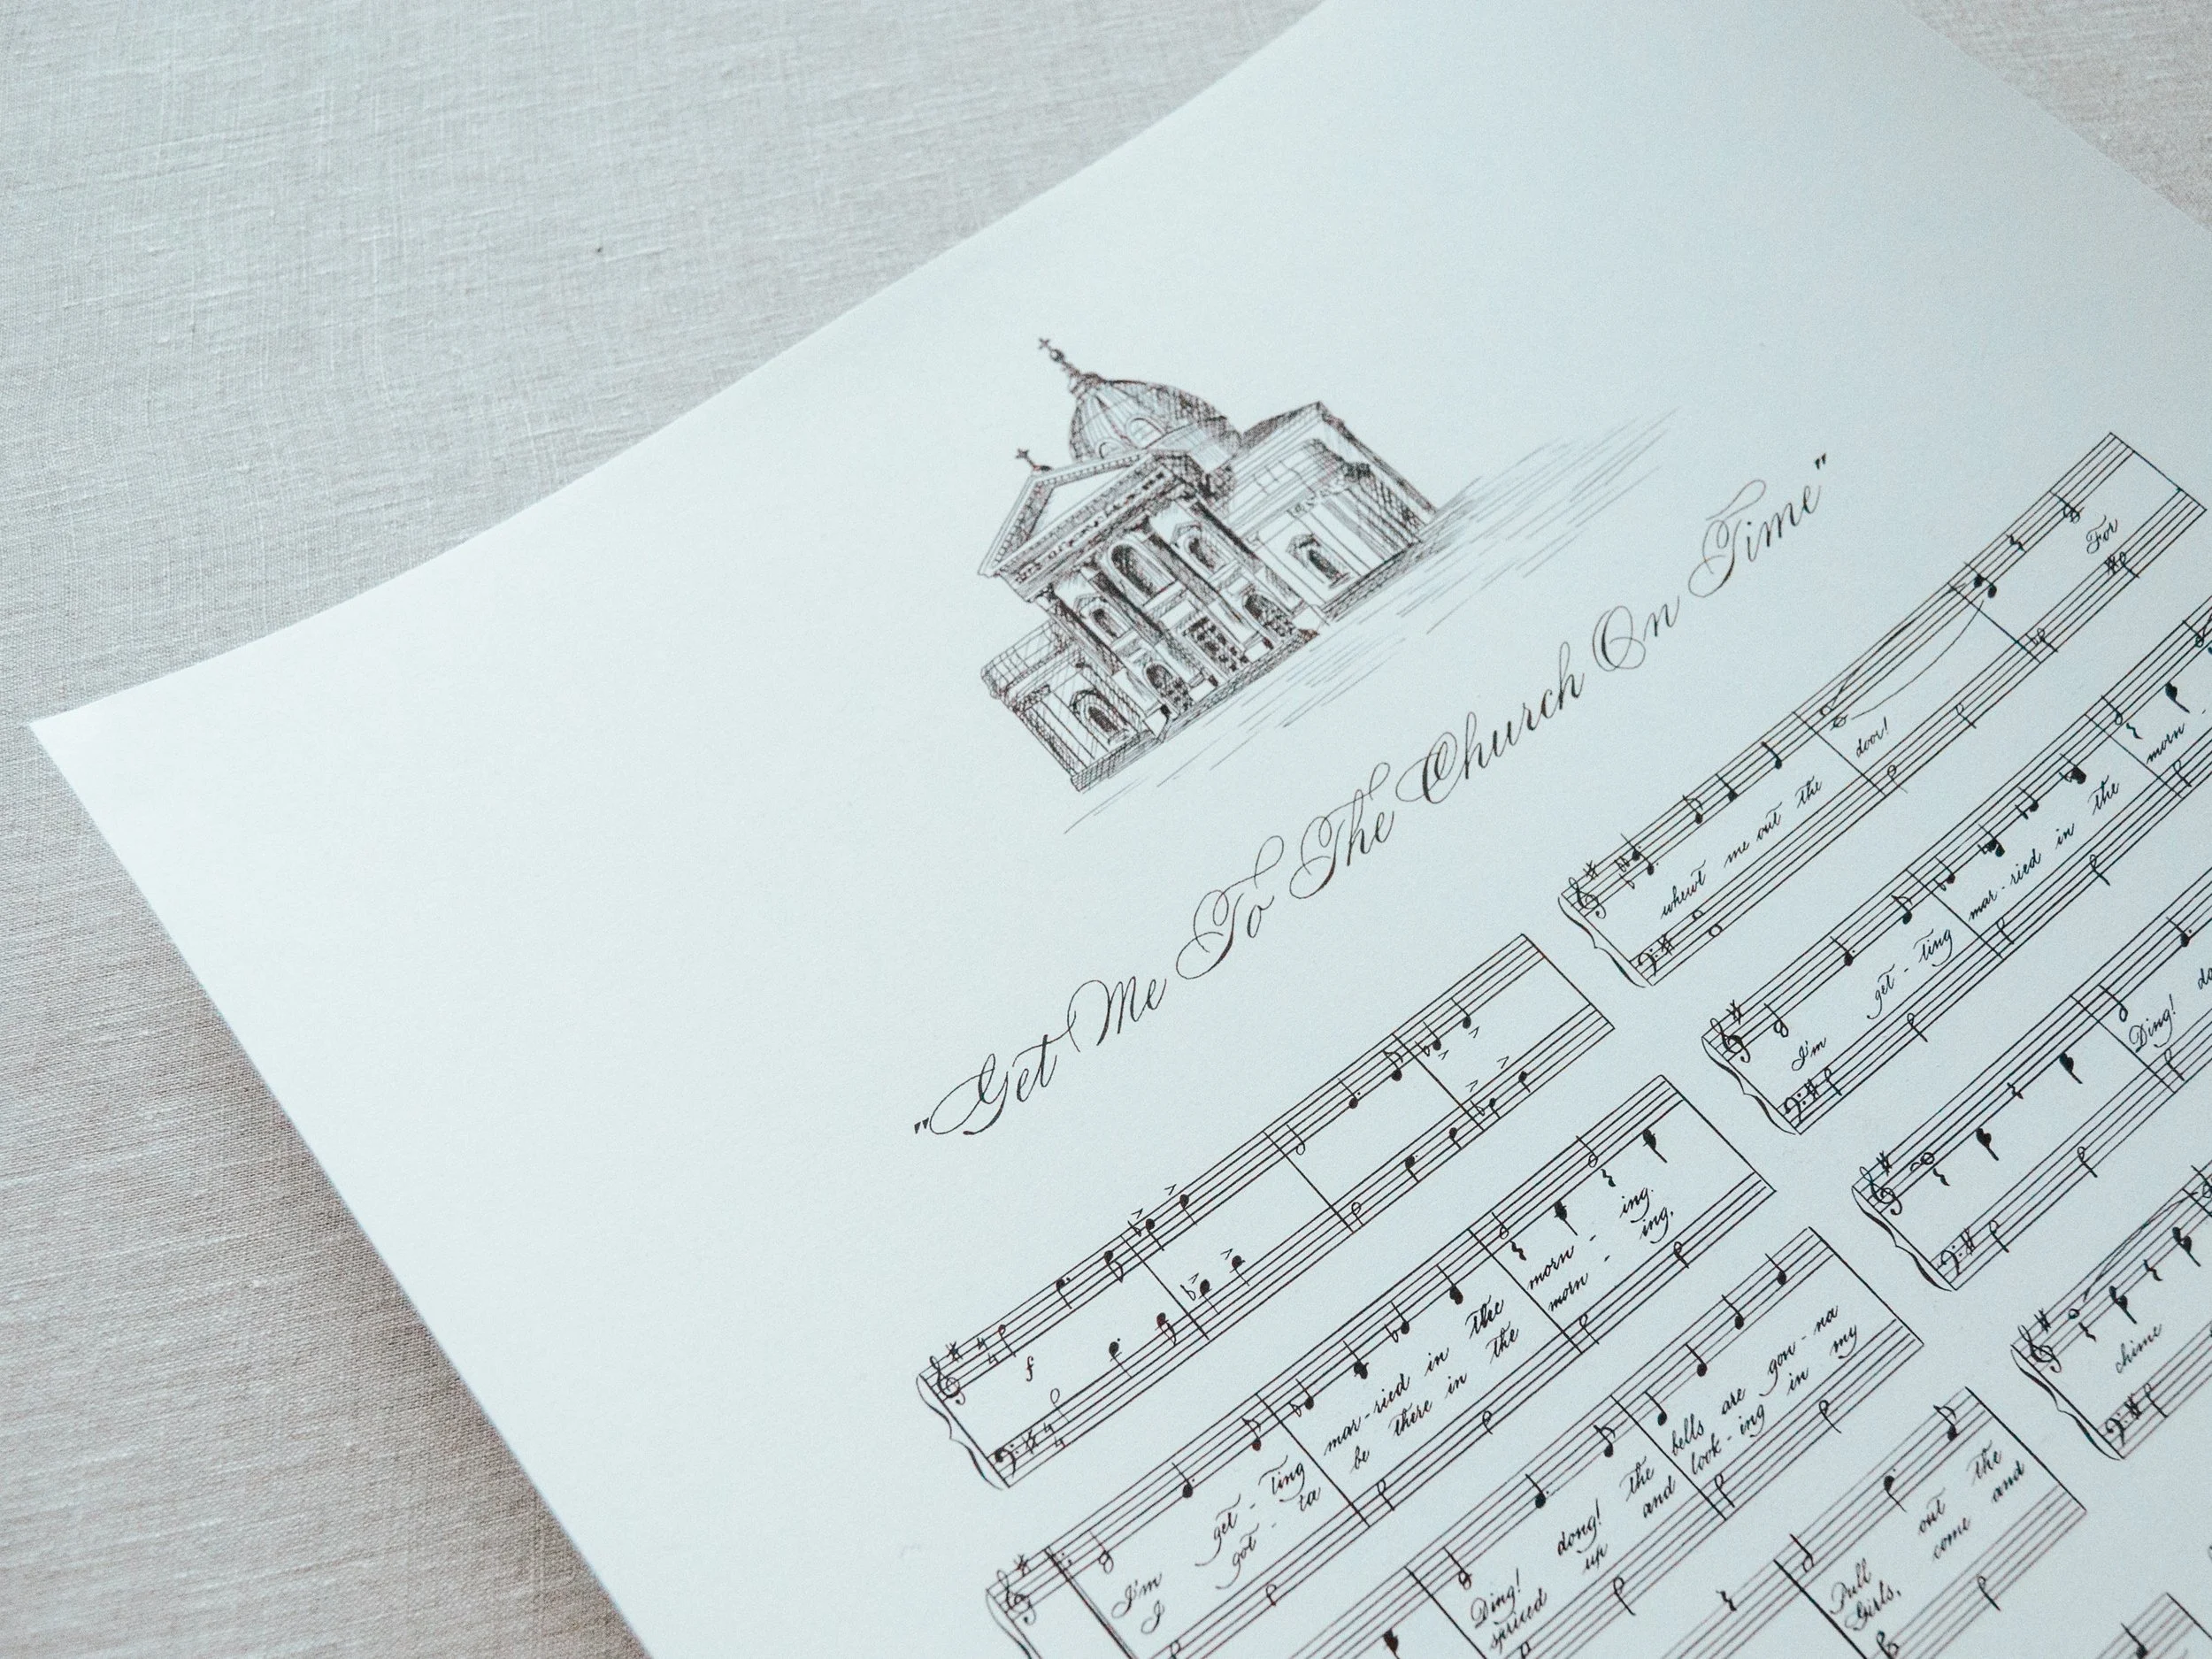 "Get Me To The Church On Time"
f
I'm get - ting mar - ried in the morn - ing.
I got - ta be there in the morn - ing,
Ding! dong! the bells are gon - na
spruced up and look - ing in my
Pull out the
Girls, come and
whewt me out the door! For
I'm get - ting mar - ried in the morn -
Ding!
chime